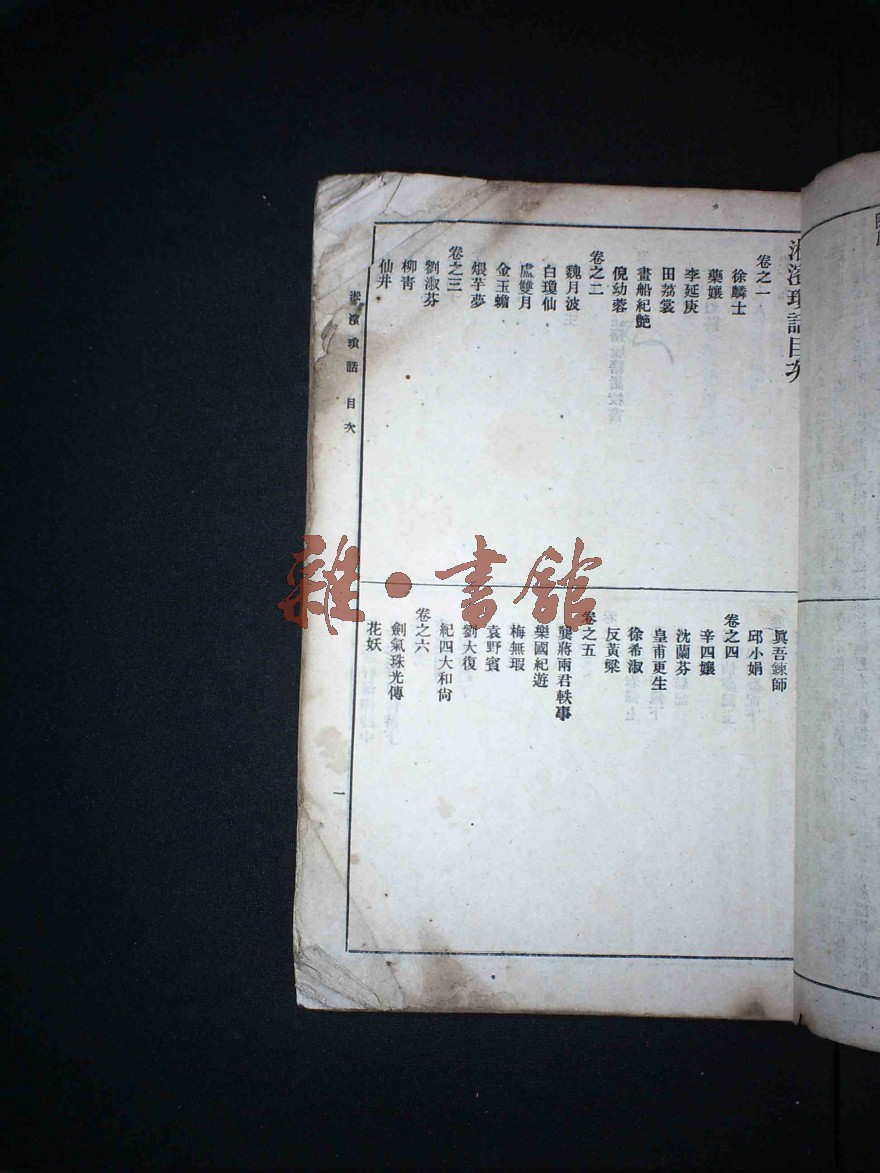 淞濱瑣話目次
卷之一
徐麟士
藥孃
李延庚
田荔裳
畫船紀艷
倪幼蓉
卷之二
魏月波
白瓊仙
盧雙月
金玉蟾
煨芋夢
卷之三
劉淑芬
柳青
仙井
眞吾鍊師
邱小娟
卷之四
辛四孃
沈蘭芬
皇甫更生
徐希淑
反黃粱
卷之五
龔蔣兩君軼事
樂國紀遊
梅無瑕
袁野賓
劉大復
紀四大和尙
卷之六
劍氣珠光傳
花妖
淞濱瑣話 目次
一
雜·書館